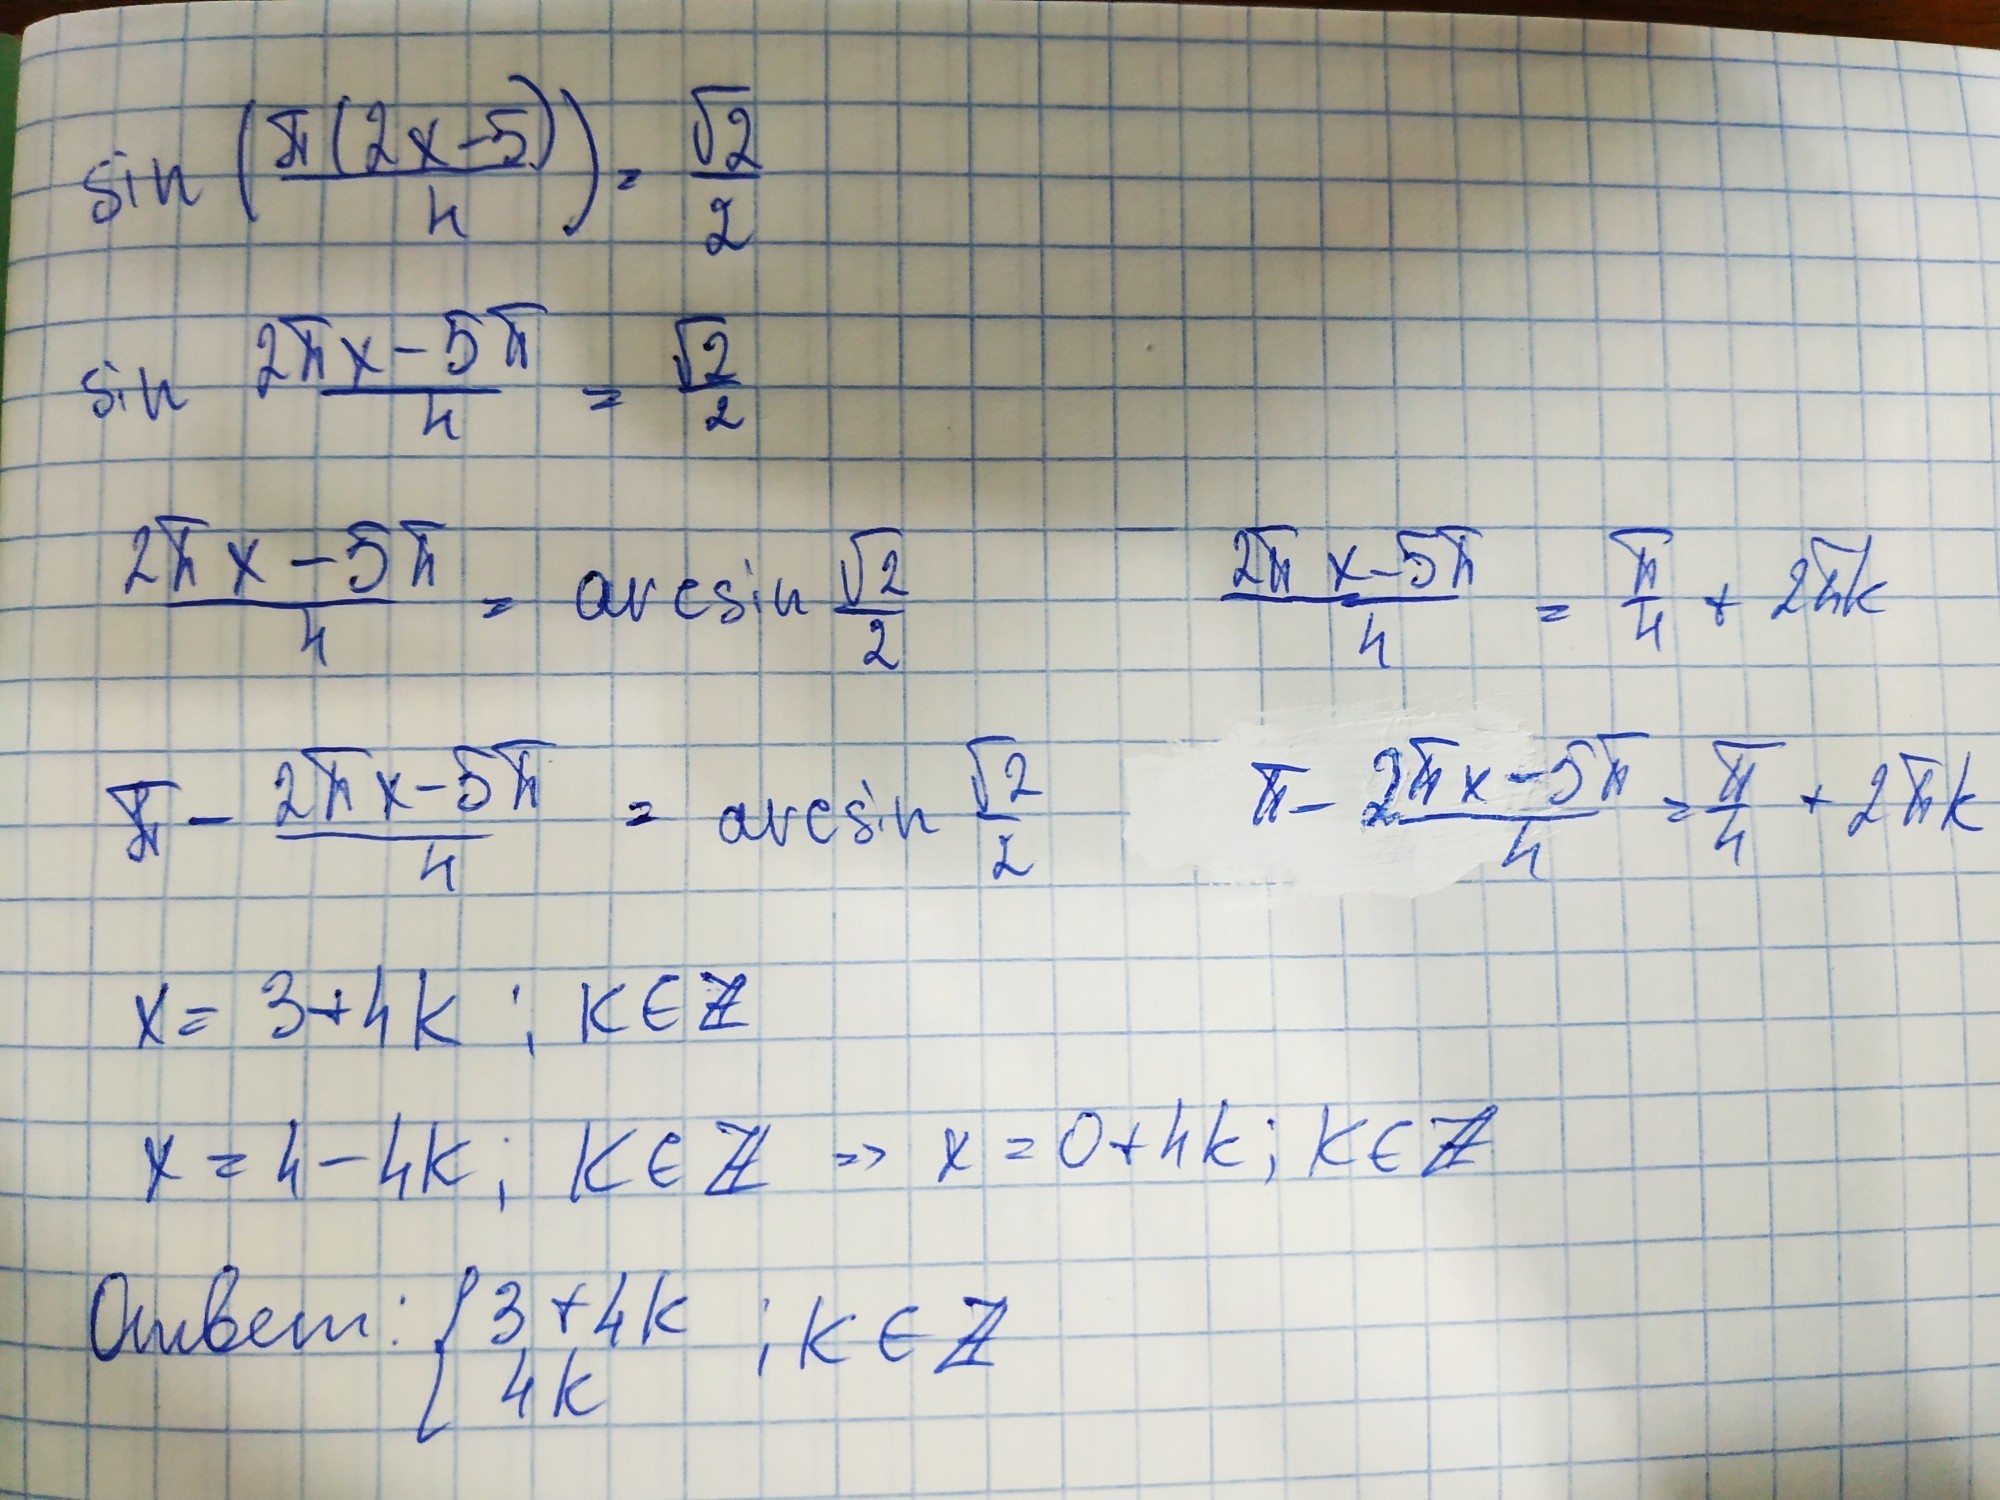 sin (π(2x-5)/4) = √2/2
sin 2πx-5π/4 = √2/2
2πx-5π/4 = arcsin √2/2
2πx-5π/4 = π/4 + 2πk
π - 2πx-5π/4 = arcsin √2/2
π - 2πx-5π/4 = π/4 + 2πk
x = 3+4k ; k∈ℤ
x = 4-4k; k∈ℤ => x = 0+4k; k∈ℤ
Ответ: { 3+4k ; k∈ℤ
4k